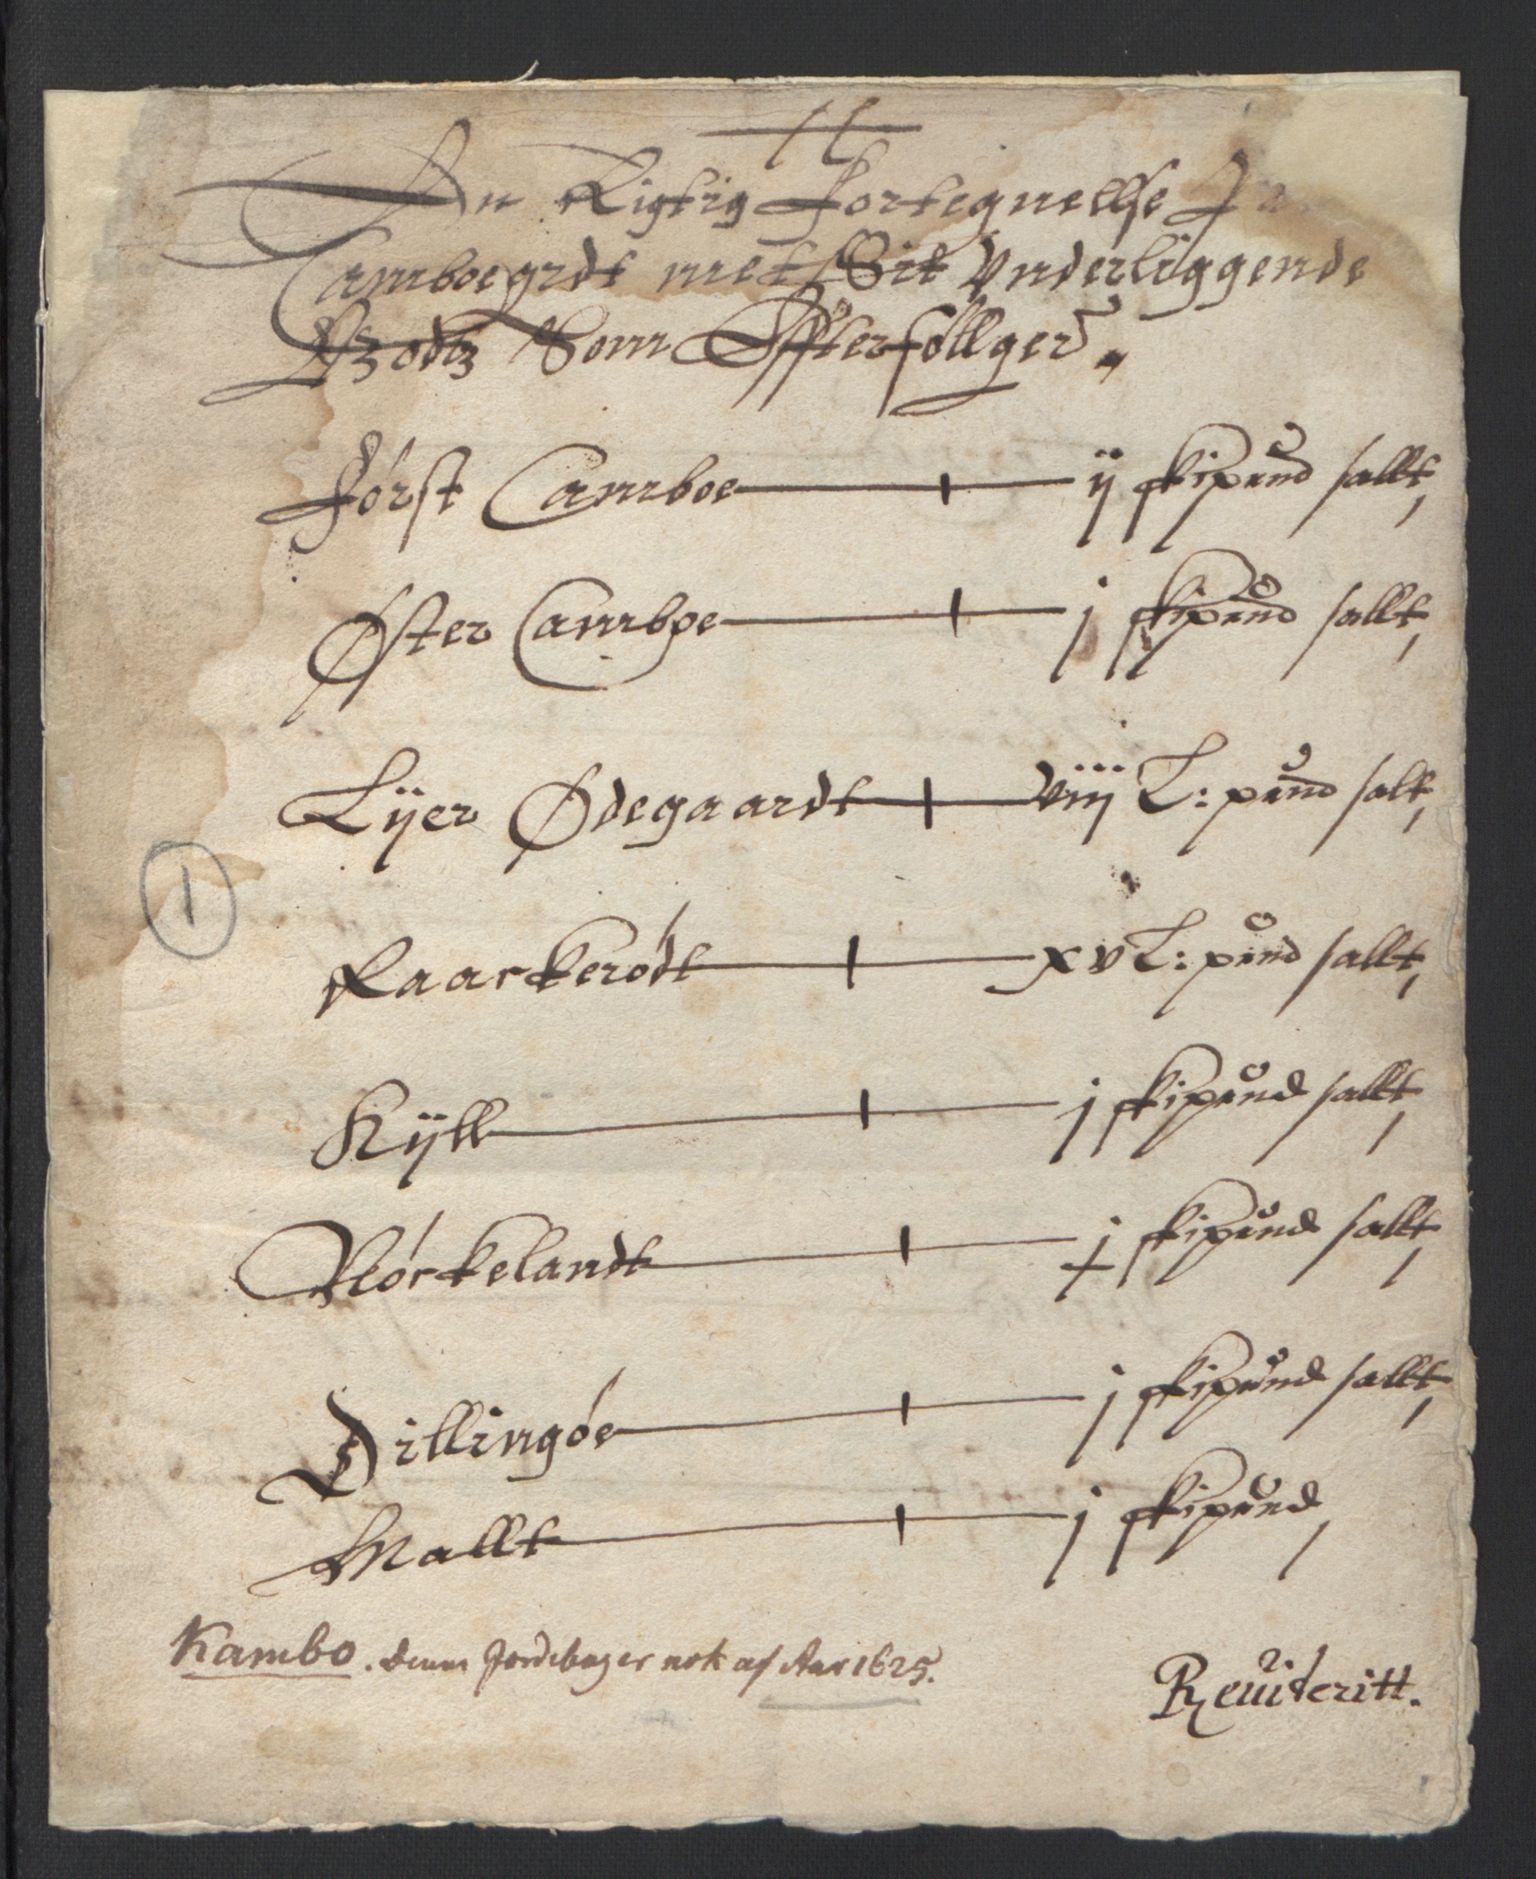 En Rigtig Fortegnelsse
Camboegrdt met Sit Vnderliggende
Godtz Som Effterföllger
Först Camboe ij skipund sallt
Øster Camboe j skipund sallt
Lijer Ødegaardt viij L: pund salt
Raackerödt xv L: pund sallt
1
Kijll j skipund sallt
Nörkelandt j skipund sallt
Dillingöe j skipund sallt
Mallt j skipund
Kambo. denne Jordebog er nok af Aar 1625.
Reuideritt.